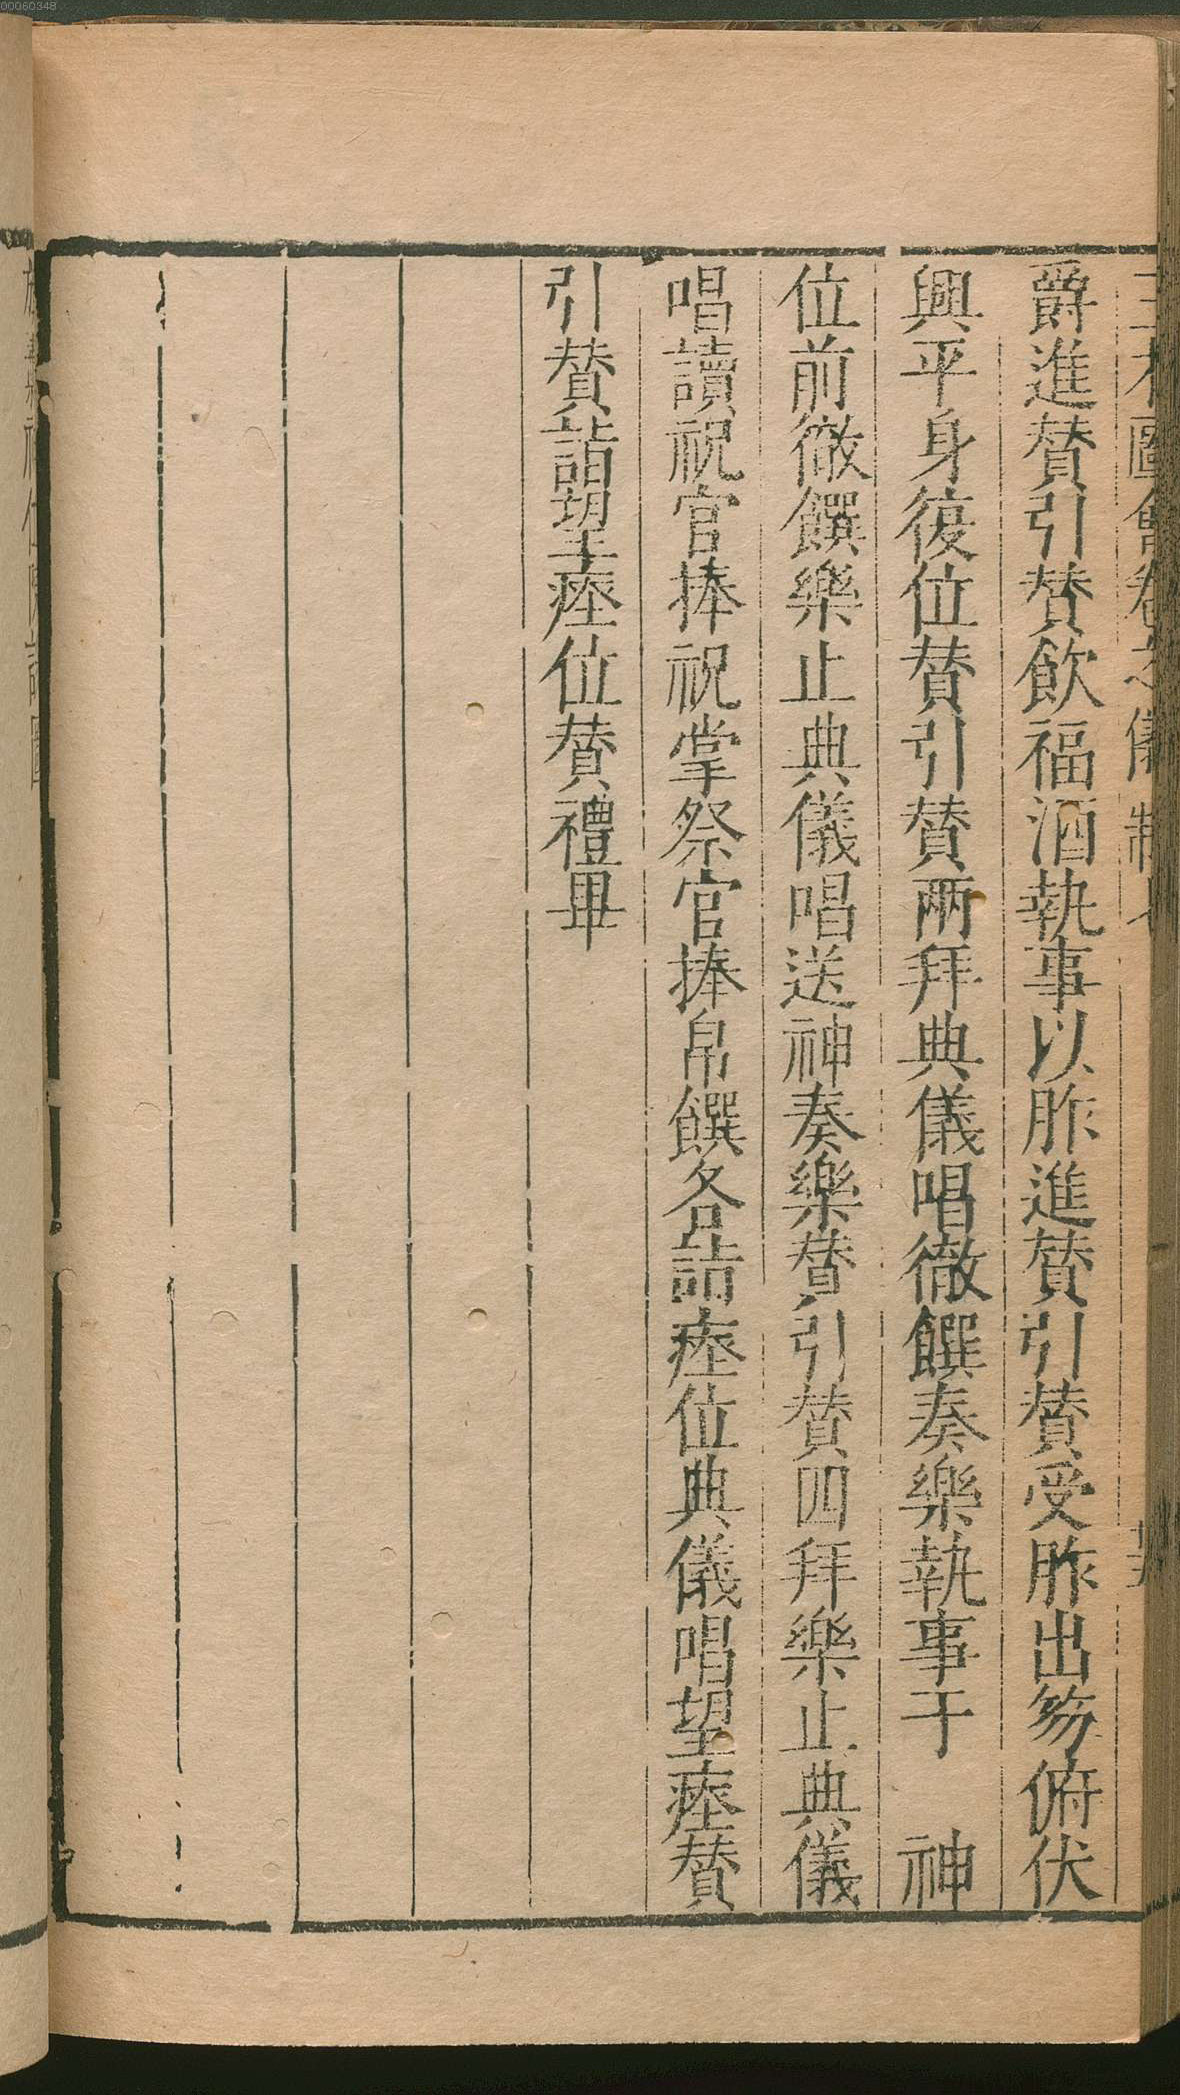 三才圖會卷之儀制七
爵進贊引贊飲福酒執事以胙進贊引贊受胙出笏俯伏
興平身復位贊引贊兩拜典儀唱徹饌奏樂執事于　神
位前徹饌樂止典儀唱送神奏樂贊引贊四拜樂止典儀
唱讀祝官捧祝掌祭官捧帛饌各詣瘞位典儀唱望瘞贊
引贊詣望瘞位贊禮畢
00060348